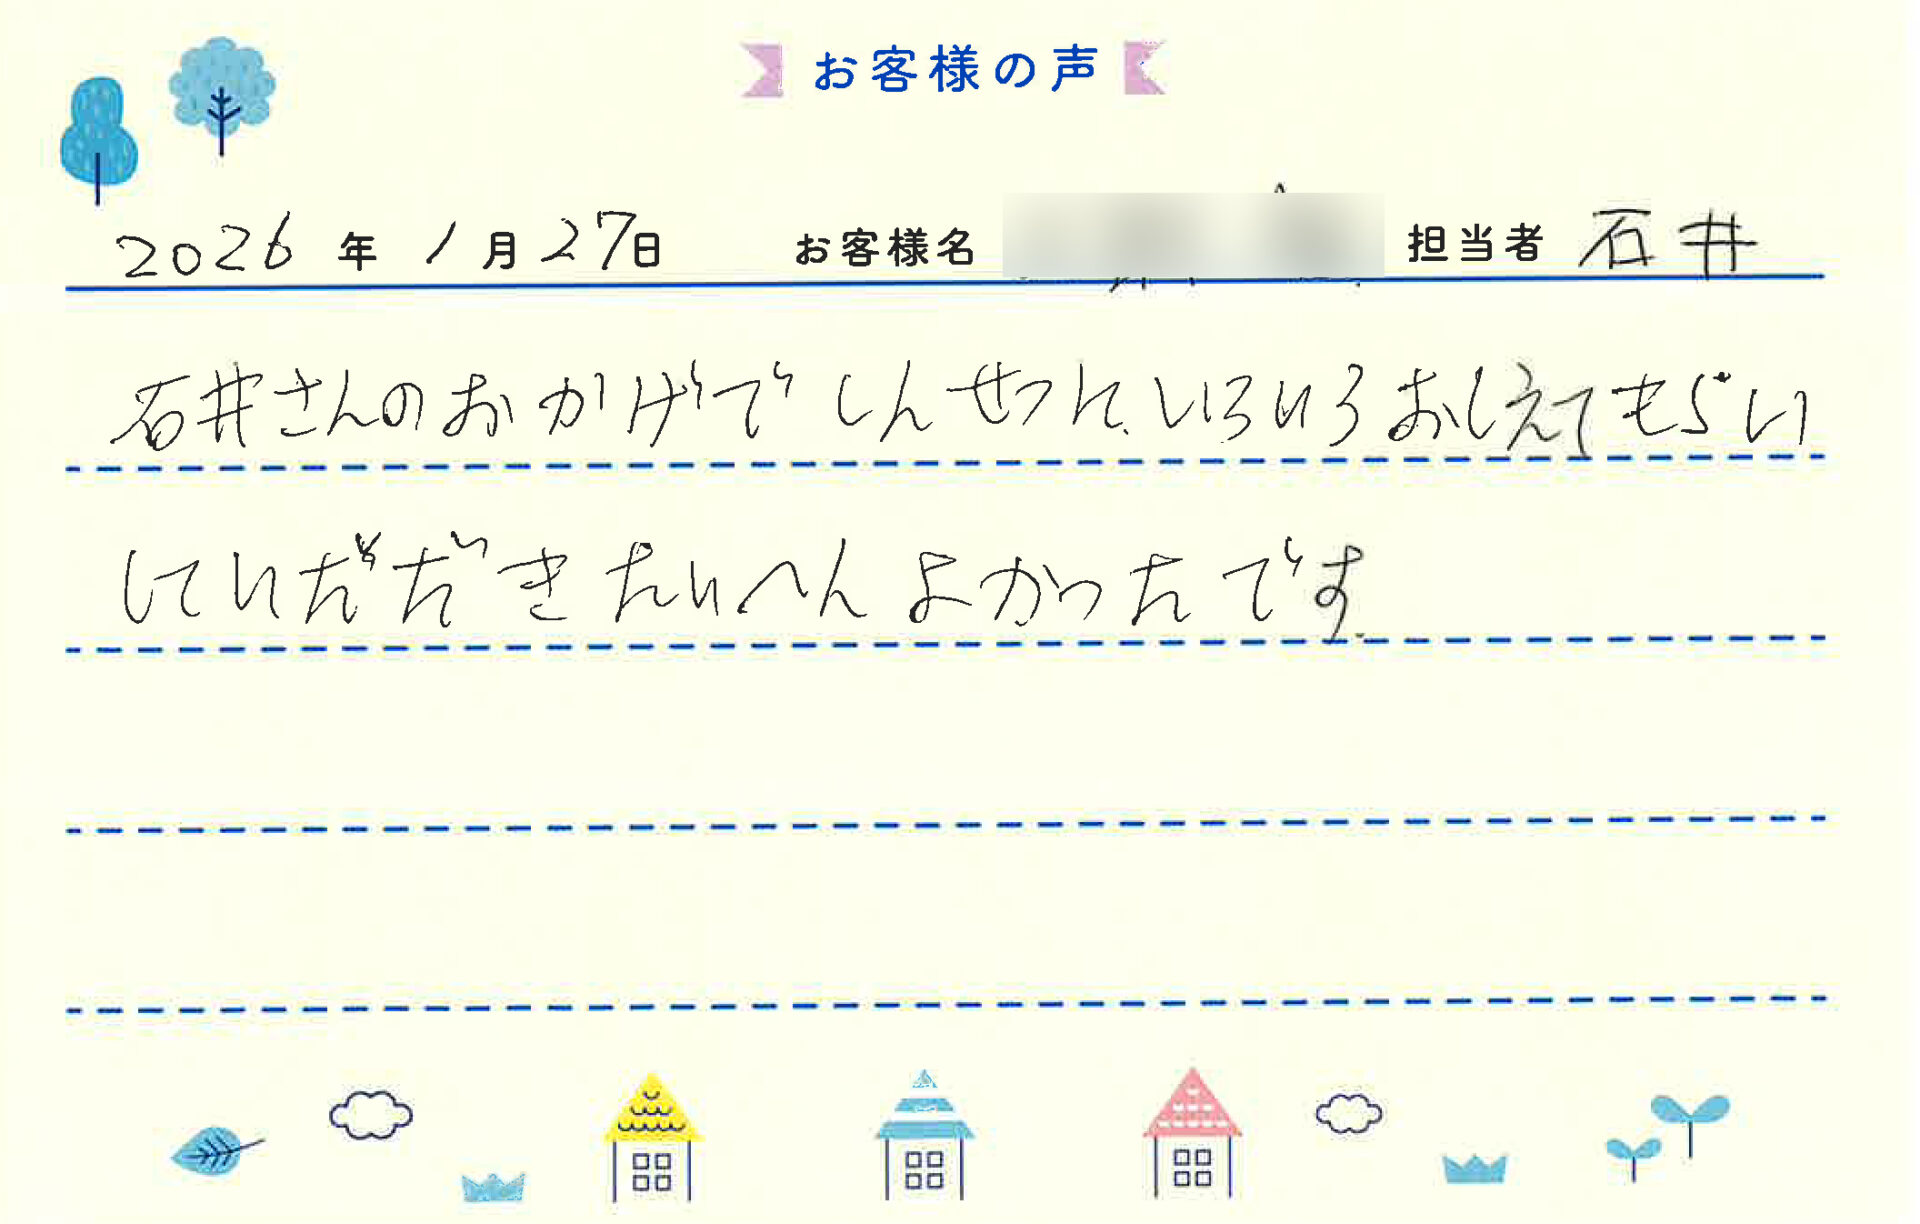 お客様の声
2026年1月27日 お客様名 担当者 石井
石井さんのおかげでしんせつに、いろいろおしえてもらい
していだだきたいへんよかったです。